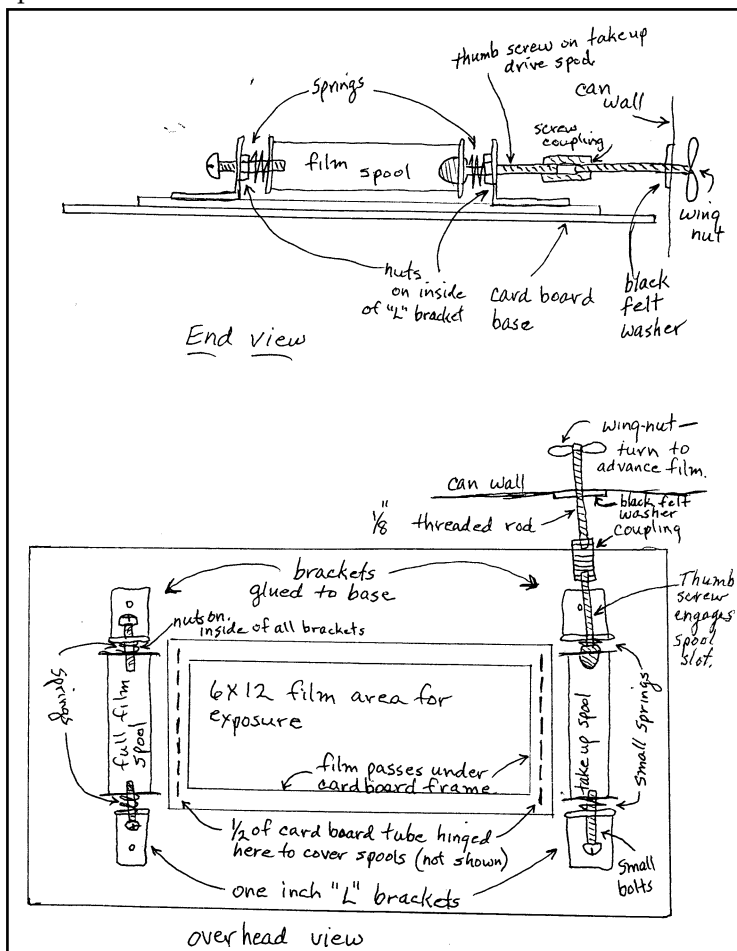 springs
thumb screw on takeup
drive spool
can
wall
screw
coupling
film spool
wing
nut
nuts
on inside
of "L" bracket
card board
base
black
felt
washer
End view
wing-nut —
turn to
advance film.
can wall
black felt
washer
1/8" threaded rod
coupling
brackets
glued to base
Thumb
screw
engages
spool
slot.
nuts on
inside of all brackets
springs
full film
spool
6X12 film area for
exposure
take up spool
small springs
film passes under
cardboard frame
1/2 of card board tube hinged
here to cover spools (not shown)
one inch "L" brackets
small
bolts
overhead view